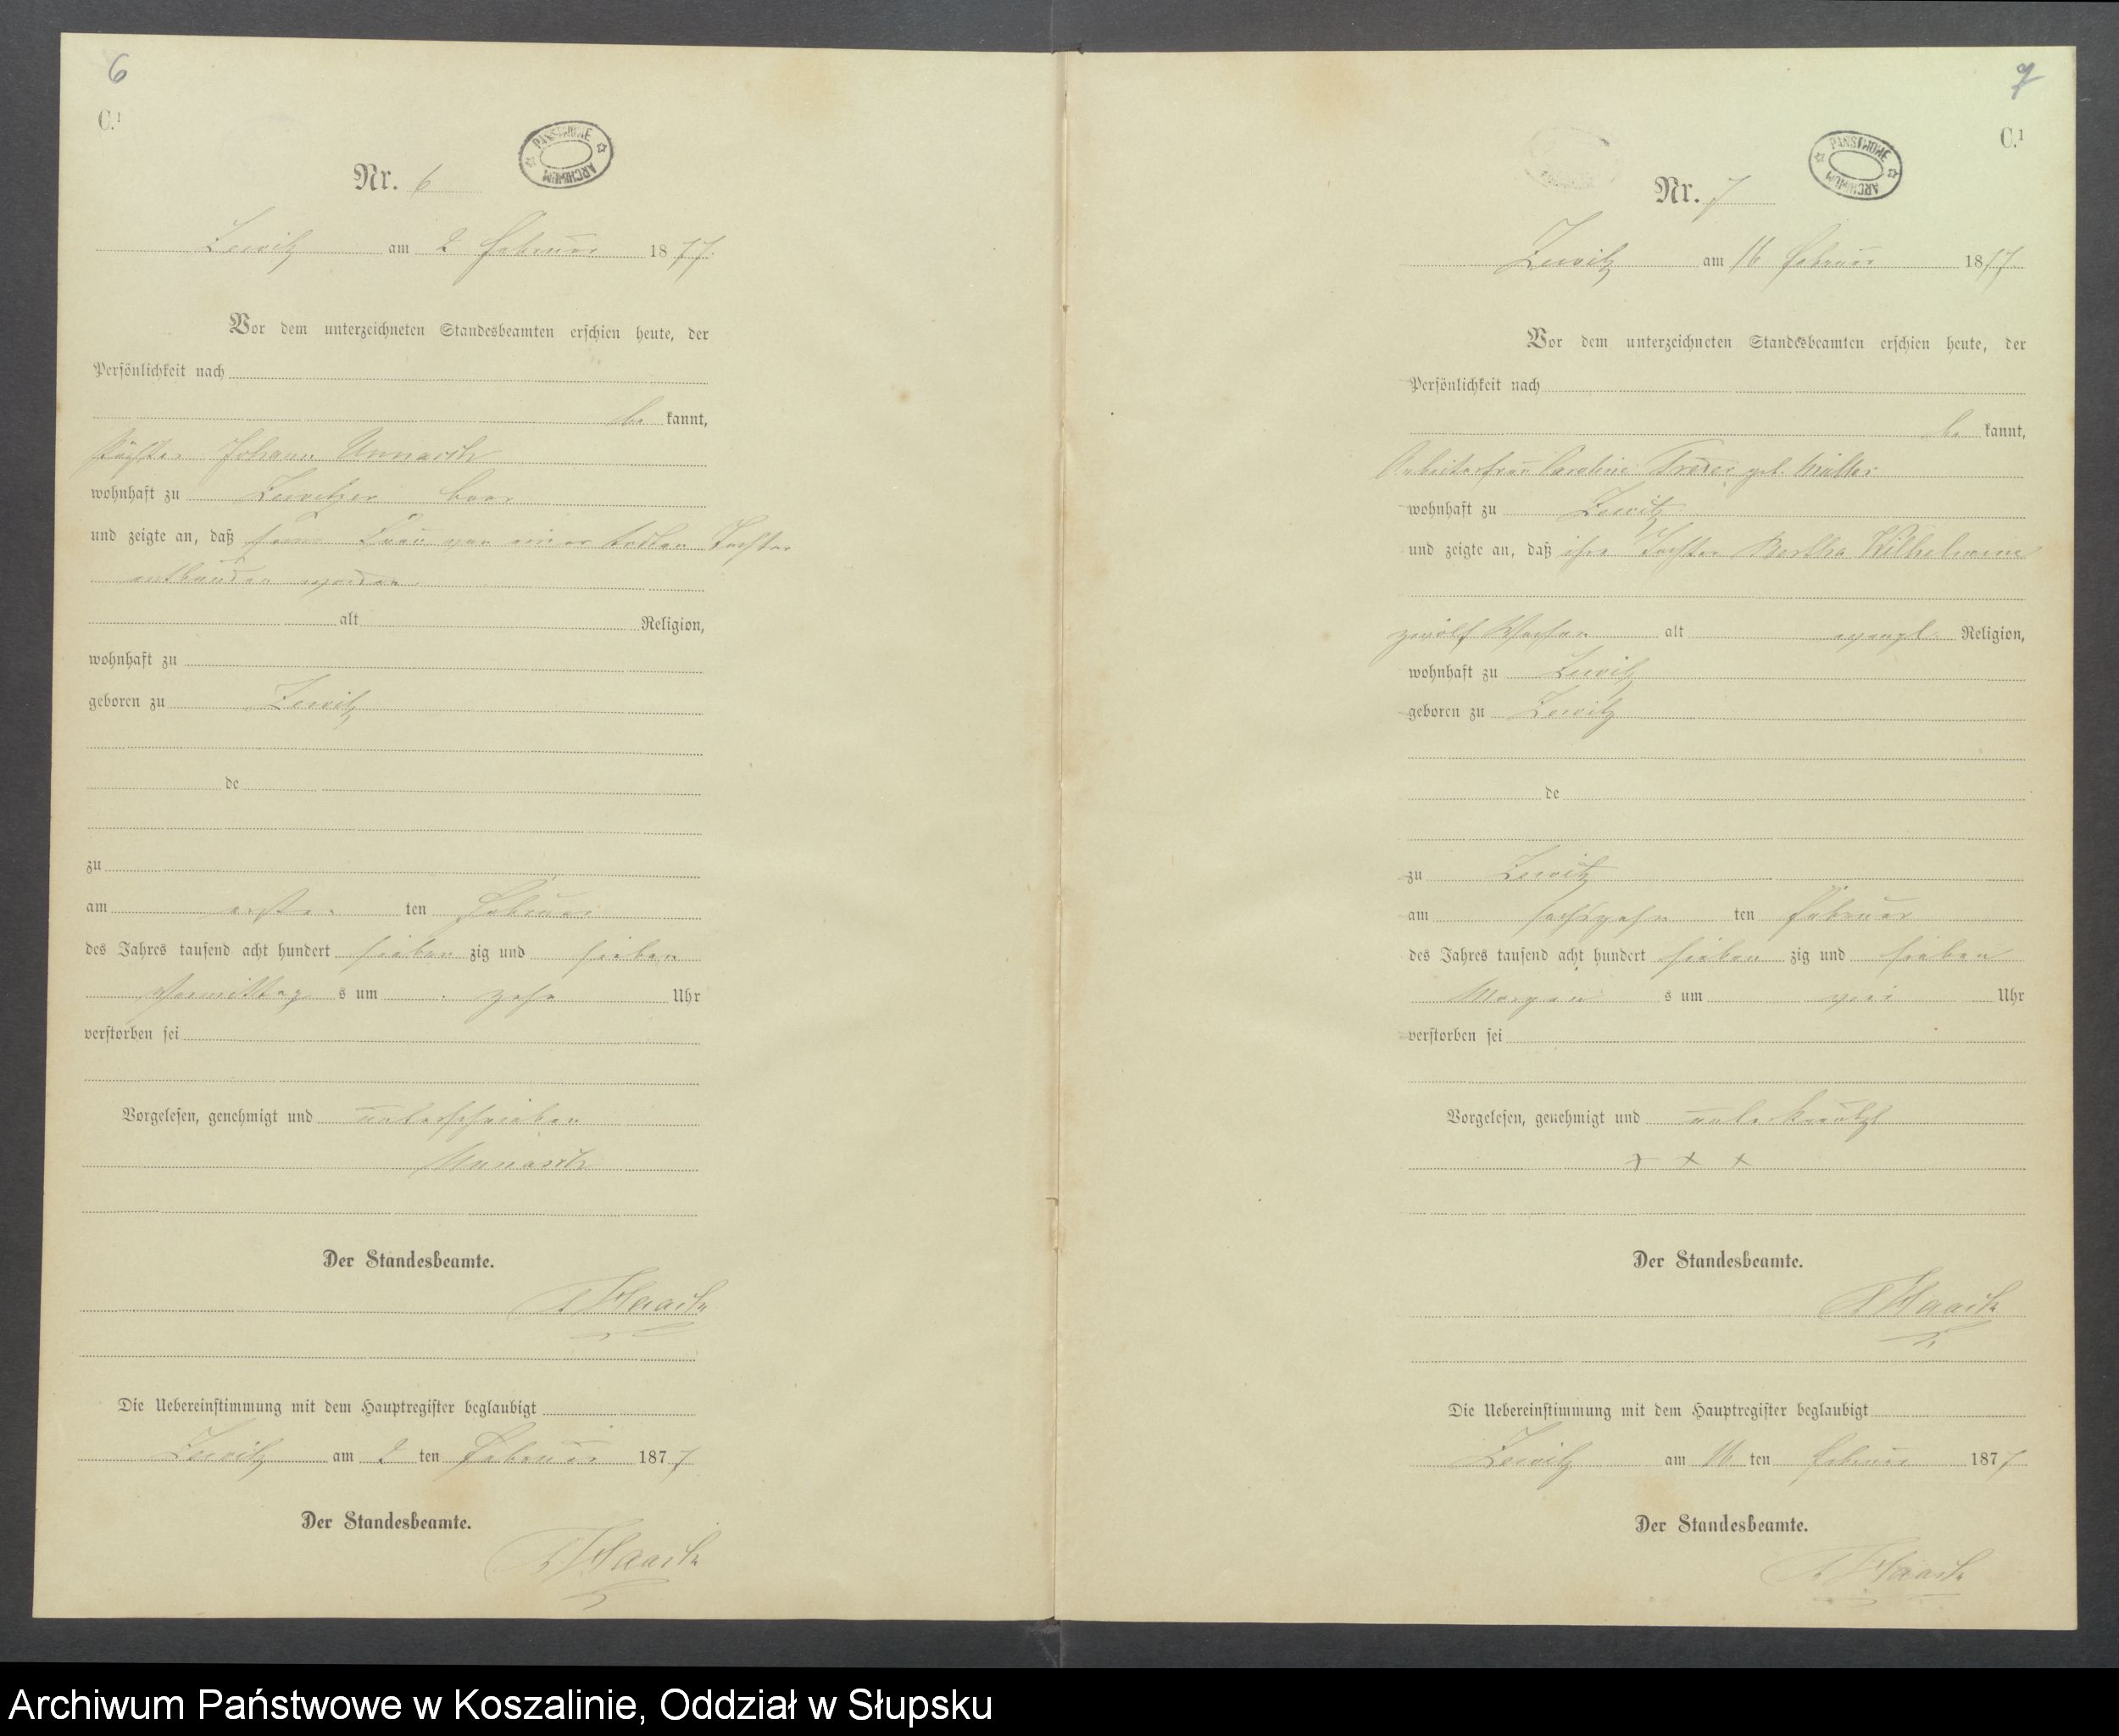 6
C.¹
PAŃSTWOWE ARCHIWUM
Nr. 6
Zewitz am 2 Februar 1877.
Vor dem unterzeichneten Standesbeamten erschien heute, der
Persönlichkeit nach
be kannt,
Pächter Johann Unnasch
wohnhaft zu Zewitzer
und zeigte an, daß seine Frau von einer todten Tochter
entbunden worden.
alt Religion,
wohnhaft zu
geboren zu Zewitz
de
zu
am ersten ten Februar
des Jahres tausend acht hundert sieben zig und sieben
Vormittag s um zehn Uhr
verstorben sei
Vorgelesen, genehmigt und unterschrieben
Unnasch
Der Standesbeamte.
Haack
Die Uebereinstimmung mit dem Hauptregister beglaubigt
Zewitz am 2 ten Februar 1877
Der Standesbeamte.
Haack
7
C.¹
PAŃSTWOWE ARCHIWUM
Nr. 7
Zewitz am 16 Februar 1877.
Vor dem unterzeichneten Standesbeamten erschien heute, der
Persönlichkeit nach
be kannt,
Arbeiterfrau Caroline geb. Müller
wohnhaft zu Zewitz
und zeigte an, daß ihre Tochter Bertha Wilhelmine
zwölf Wochen alt evangl. Religion,
wohnhaft zu Zewitz
geboren zu Zewitz
de
zu Zewitz
am sechszehn ten Februar
des Jahres tausend acht hundert sieben zig und sieben
Morgen s um Uhr
verstorben sei
Vorgelesen, genehmigt und unterkreutzt
x x x
Der Standesbeamte.
Haack
Die Uebereinstimmung mit dem Hauptregister beglaubigt
Zewitz am 16 ten Februar 1877
Der Standesbeamte.
Haack
Archiwum Państwowe w Koszalinie, Oddział w Słupsku